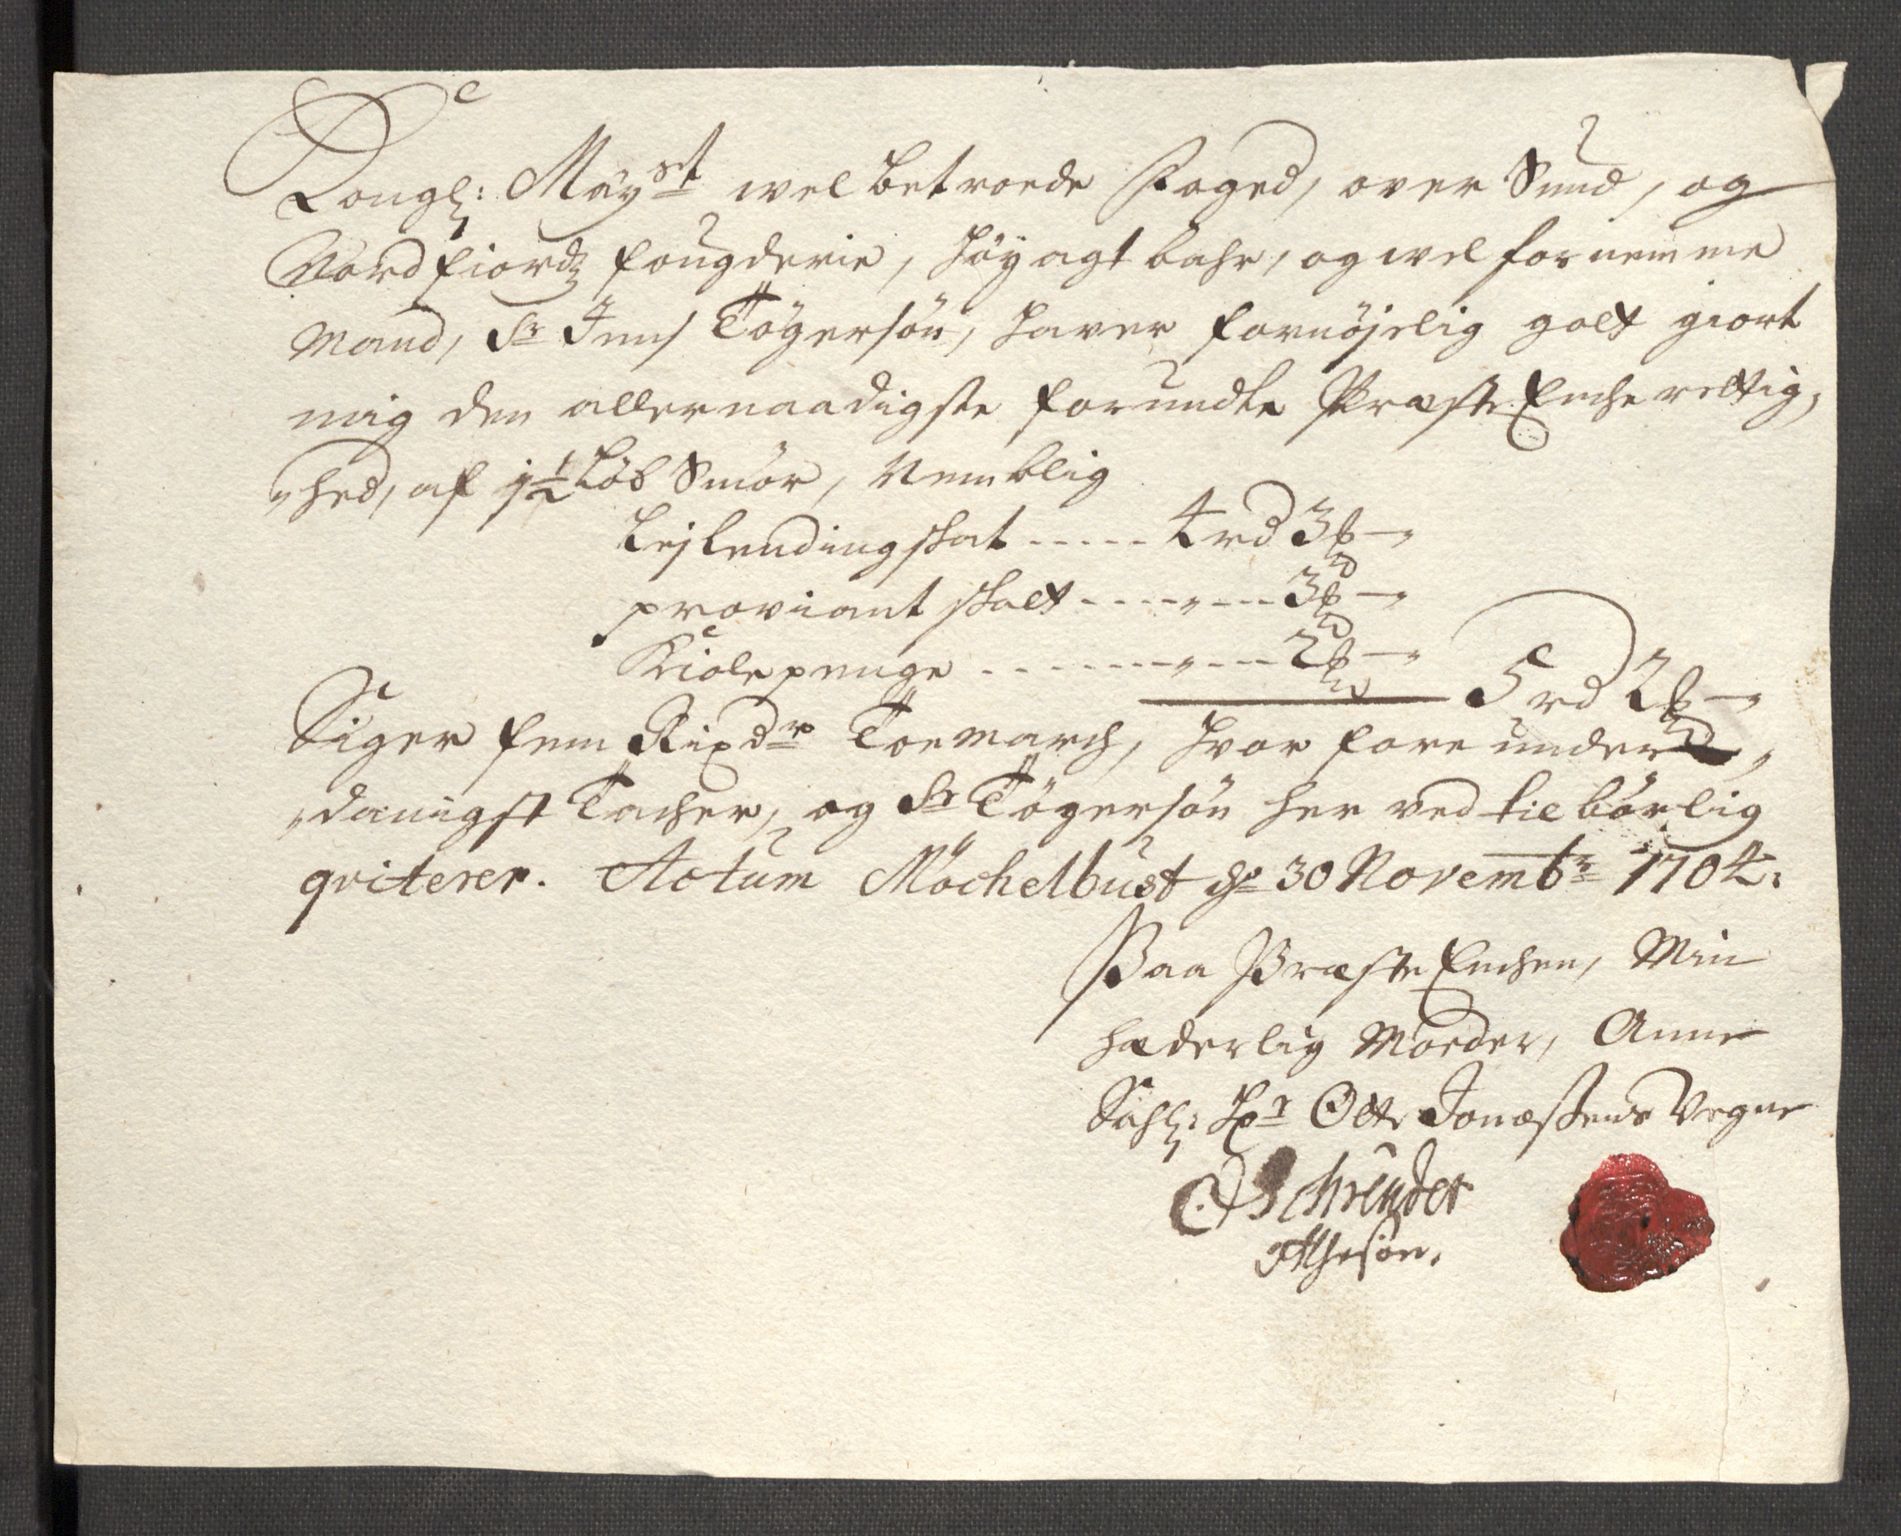 Kongl: Mayst wel betroede Foged, over Sund, og
Nordfiords fougderie, höyagtbahr, og wel fornemme
Mand, Sr Jens Tögersön, haver fornöjelig godt giort
mig den allernaadigste forundte Præste Encherettig,
"hed, af 1½ Löb Smör, Nemblig
Lejlendingskat ..... 4 rd 3 ß —"
proviant skatt ----"--- 3 ß —"
Kiolepenge ------"--- 2 ß —"
5 rd 2 ß —"
Siger fem Rixdr Toe march, hvor fore under
"danigst Tacher, og Sr Tögersön her ved tilbörlig
qviterer. Actum Möchelbust d 30 Novembr 1704.
Paa Præste Enchen, Min
hæderlig Moeder, Anne
Sahl: Hr Otte Jonæssens Vegne
Schreuder
Otthesön.